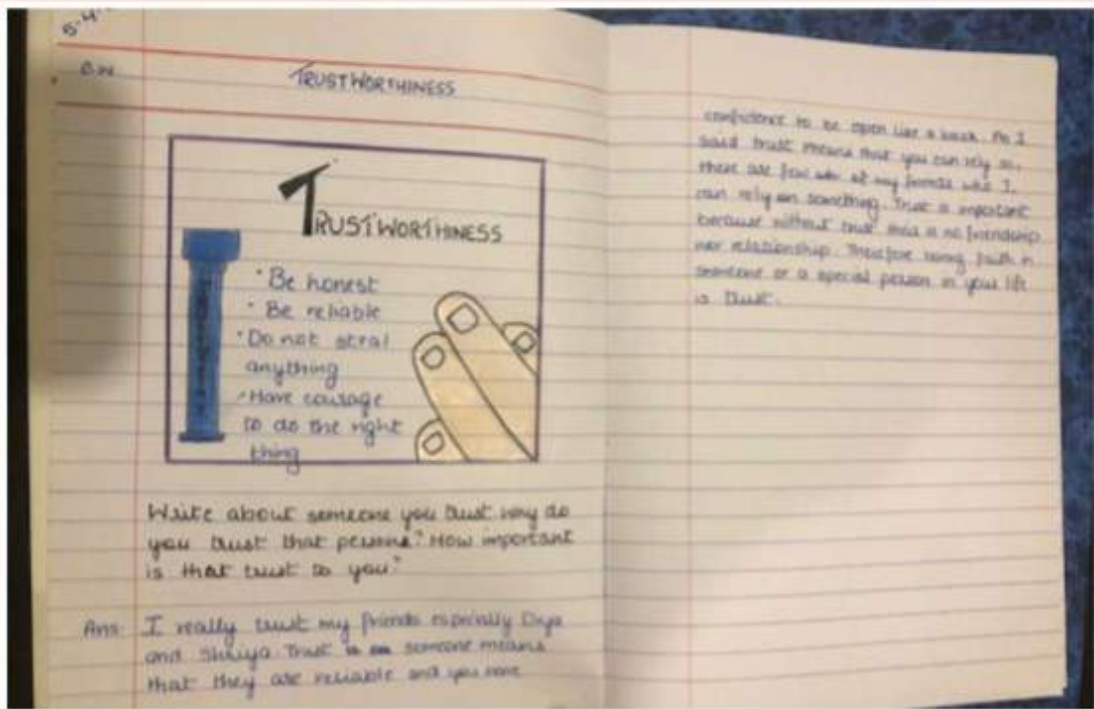 5-4-
C.W
TRUSTWORTHINESS
TRUSTWORTHINESS
• Be honest
• Be reliable
• Do not steal
anything
• Have courage
to do the right
thing
Write about someone you trust why do
you trust that persons? How important
is that trust to you?
Ans: I really trust my friends especially Diya
and Shriya. Trust someone means
that they are reliable and you have
confidence to be open like a book. As I
said trust means that you can rely so,
there are few of my friends who I
can rely on something. Trust is important
because without trust there is no friendship
nor relationship. Therefore having faith in
someone or a special person in your life
is trust.